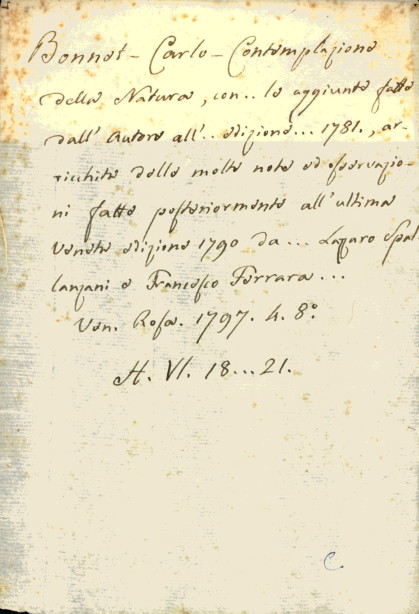 Bonnet - Carlo - Contemplazione
della Natura, con.. le aggiunte fatte
dall' Autore all'.. edizione... 1781., ar-
ricchita delle molte note ed osservazio-
ni fatte posteriormente all'ultima
Veneta edizione 1790 da... Lazaro Spal
lanzani e Francesco Ferrara...
Ven. Rosa. 1797. 4. 8.°
H. VI. 18...21.
C.